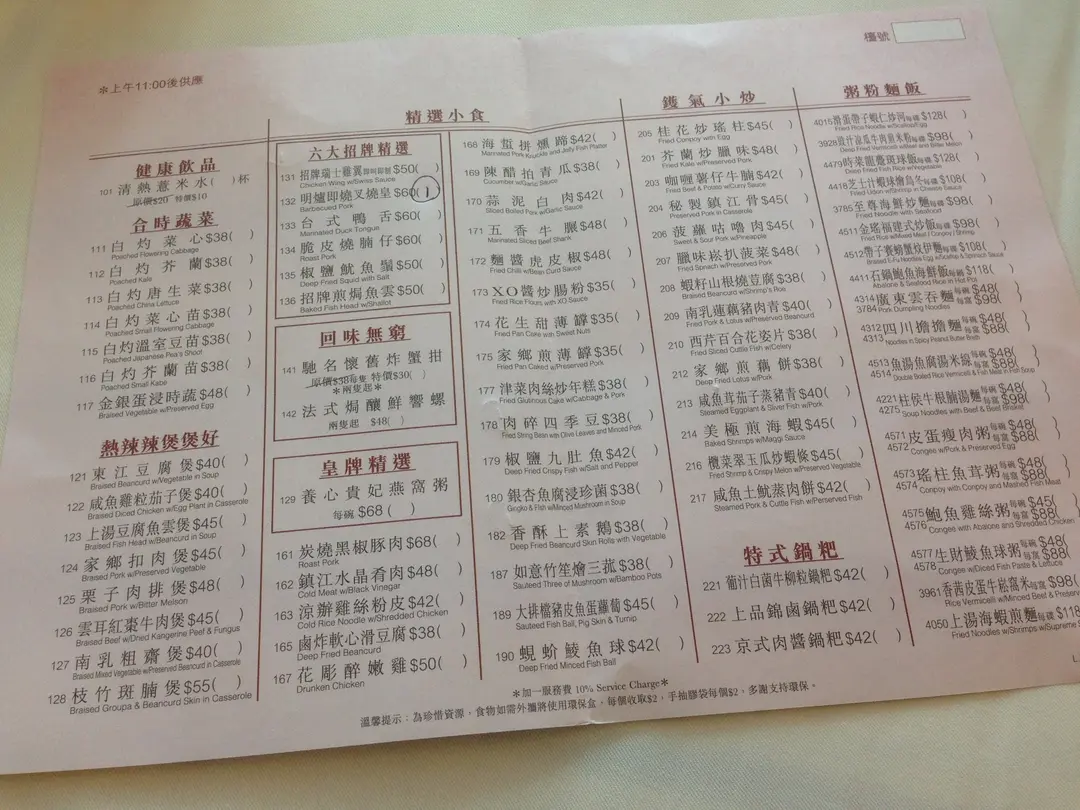 *上午11:00後供應
檯號
健康飲品
101 清熱薏米水( )杯
原價$20 特價$10
合時蔬菜
111 白灼菜心$38( )
Poached Flowering Cabbage
112 白灼芥蘭$38( )
Poached Kale
113 白灼唐生菜$38( )
Poached China Lettuce
114 白灼菜心苗$38( )
Poached Small Flowering Cabbage
115 白灼溫室豆苗$38( )
Poached Japanese Pea's Shoot
116 白灼芥蘭苗$38( )
Poached Small Kabe
117 金銀蛋浸時蔬$48( )
Braised Vegetable w/Preserved Egg
熱辣辣煲煲好
121 東江豆腐煲$40( )
Braised Beancurd w/Vegetable in Soup
122 咸魚雞粒茄子煲$40( )
Braised Diced Chicken w/Egg Plant in Casserole
123 上湯豆腐魚雲煲$45( )
Braised Fish Head w/Beancurd in Soup
124 家鄉扣肉煲$45( )
Braised Pork w/Preserved Vegetable
125 栗子肉排煲$48( )
Braised Pork w/Bitter Melson
126 雲耳紅棗牛肉煲$48( )
Braised Beef w/Dried Kangerine Peel & Fungus
127 南乳粗齋煲$40( )
Braised Mixed Vegetable w/Preserved Beancurd in Casserole
128 枝竹斑腩煲$55( )
Braised Groupa & Beancurd Skin in Casserole
精選小食
六大招牌精選
131 招牌瑞士雞翼$50( )
Chicken Wing w/Swiss Sauce
132 明爐即燒叉燒皇$60(1)
Barbecued Pork
133 台式鴨舌$60( )
Marinated Duck Tongue
134 脆皮燒腩仔$60( )
Roast Pork
135 椒鹽魷魚鬚$50( )
Deep Fried Squid with Salt
136 招牌煎焗魚雲$50( )
Baked Fish Head w/Shallot
回味無窮
141 馳名懷舊炸蟹拑
原價$38每隻 特價$30( )
*兩隻起*
142 法式焗釀鮮響螺
兩隻起 $48( )
皇牌精選
129 養心貴妃燕窩粥
每碗 $68( )
161 炭燒黑椒豚肉$68( )
Roast Pork
162 鎮江水晶肴肉$48( )
Cold Meat w/Black Vinegar
163 涼辦雞絲粉皮$42( )
Cold Rice Noodle w/Shredded Chicken
165 鹵炸軟心滑豆腐$38( )
Deep Fried Beancurd
167 花彫醉嫩雞$50( )
Drunken Chicken
168 海蜇拼燻蹄$42( )
Marinated Pork Knuckle and Jelly Fish Platter
169 陳醋拍青瓜$38( )
Cucumber w/Garlic Sauce
170 蒜泥白肉$42( )
Sliced Boiled Pork w/Garlic Sauce
171 五香牛𦟌$48( )
Marinated Sliced Beef Shank
172 麵醬虎皮椒$48( )
Fried Chilli w/Bean Curd Sauce
173 XO醬炒腸粉$35( )
Fried Rice Flours with XO Sauce
174 花生甜薄罉$35( )
Fried Pan Cake with Sweet Nuts
175 家鄉煎薄罉$35( )
Fried Pan Caked w/Preserved Pork
177 津菜肉絲炒年糕$38( )
Fried Glutinous Cake w/Cabbage & Pork
178 肉碎四季豆$38( )
Fried String Bean with Olive Leaves and Minced Pork
179 椒鹽九肚魚$42( )
Deep Fried Crispy Fish w/Salt and Pepper
180 銀杏魚腐浸珍菌$38( )
Gingko & Fish w/Minced Mushroom in Soup
182 香酥上素鵝$38( )
Deep Fried Beancurd Skin Rolls with Vegetable
187 如意竹笙燴三菰$38( )
Sauteed Three of Mushroom w/Bamboo Pots
189 大排檔豬皮魚蛋蘿蔔$45( )
Sauteed Fish Ball, Pig Skin & Turnip
190 蜆蚧鯪魚球$42( )
Deep Fried Minced Fish Ball
鑊氣小炒
205 桂花炒瑤柱$45( )
Fried Conpoy with Egg
201 芥蘭炒臘味$48( )
Fried Kale w/Preserved Pork
203 咖喱薯仔牛腩$42( )
Fried Beef & Potato w/Curry Sauce
204 秘製鎮江骨$45( )
Preserved Pork in Casserole
206 菠蘿咕嚕肉$45( )
Sweet & Sour Pork w/Pineapple
207 臘味崧扒菠菜$48( )
Fried Spinach w/Preserved Pork
208 蝦籽山根燒豆腐$38( )
Braised Beancurd w/Shrimp's Roe
209 南乳連藕豬肉青$40( )
Fried Pork & Lotus w/Preserved Beancurd
210 西芹百合花姿片$38( )
Fried Sliced Cuttle Fish w/Celery
212 家鄉煎藕餅$38( )
Deep Fried Lotus w/Pork
213 咸魚茸茄子蒸豬青$40( )
Steamed Eggplant & Sliver Fish w/Pork
214 美極煎海蝦$45( )
Baked Shrimps w/Maggi Sauce
216 欖菜翠玉瓜炒蝦條$45( )
Fried Shrimp & Crispy Melon w/Preserved Vegetable
217 咸魚土魷蒸肉餅$42( )
Steamed Pork & Cuttle Fish w/Perserved Fish
特式鍋粑
221 葡汁白菌牛柳粒鍋粑$42( )
222 上品錦鹵鍋粑$42( )
223 京式肉醬鍋粑$42( )
粥粉麵飯
4015 滑蛋帶子蝦仁炒河每碟$128( )
Fried Rice Noodle w/Scallop/Egg
3928 豉汁凉瓜牛肉魚米粉每碟$98( )
Deep Fried Vermicelli w/Beef and Bitter Melon
4479 時菜龍躉斑球飯每碟$128( )
Deep Fried Fish Rice w/Vegetable
4416 芝士汁蝦球燴烏冬每碟$128( )
Fried Udon w/Shrimp in Cheesen Sauce
3785 至尊海鮮炒麵每碟$98( )
Fried Noodle with Seafood
4511 金瑤福建式炒飯每碟$98( )
Fried Rice w/Mixed Meat / Conpoy / Shrimp
4512 帶子賽螃蟹炆伊麵每碟$108( )
Braised E-Fu Noodles Egg w/Scallop & Spinach
4411 石鍋鮑魚海鮮飯每碟$118( )
Abalone & Seafood Rice in Hot Pot
4314 廣東雲吞麵每碗$48( )
3784 Pork Dumpling Noodles 每窩$98( )
4312 四川擔擔麵每碗$48( )
4313 Noodles in Spicy Peanut Butter Breth 每窩$88( )
4513 魚湯魚腐湯米線每碗$48( )
4514 Double Boiled Rice Vermicelli & Fish Meat in Fish Soup 每窩$88( )
4221 柱侯牛根腩湯麵每碗$48( )
4275 Soup Noodles with Beef & Beef Brisket 每窩$98( )
4571 皮蛋瘦肉粥每碗$48( )
4572 Congee w/Pork & Perserved Egg 每窩$88( )
4573 瑤柱魚茸粥每碗$48( )
4574 Conpoy with Conpoy and Mashed Fish Meat 每窩$88( )
4575 鮑魚雞絲粥每碗$45( )
4576 Congee with Abalone and Shredded Chicken 每窩$88( )
4577 生財鯪魚球粥每碗$48( )
4578 Congee w/Diced Fish Paste & Lettuce 每窩$88( )
3961 香茜皮蛋牛崧窩米每窩$98( )
Rice Vermicelli w/Minced Beef & Preserve
4050 上湯海蝦煎麵每碟$118
Fried Noodles w/Shrimps w/Supreme S
*加一服務費 10% Service Charge*
溫馨提示：為珍惜資源，食物如需外攜將使用環保盒，每個收取$2，手抽膠袋每個$2，多謝支持環保。